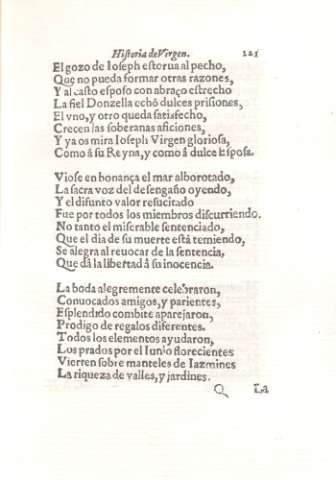 Historia de Virgen. 121
El gozo de Ioseph estorua al pecho,
Que no pueda formar otras razones,
Y al casto esposo con abraço estrecho
La fiel Donzella echó dulces prisiones,
El vno, y otro queda satisfecho,
Crecen las soberanas aficiones,
Y ya os mira Ioseph Virgen gloriosa,
Como á su Reyna, y como á dulce Esposa.
Viose en bonança el mar alborotado,
La sacra voz del desengaño oyendo,
Y el difunto valor resucitado
Fue por todos los miembros discurriendo.
No tanto el miserable sentenciado,
Que el dia de su muerte está temiendo,
Se alegra al reuocar de la sentencia,
Que dá la libertad á su inocencia.
La boda alegremente celebraron,
Conuocados amigos, y parientes,
Esplendido combite aparejaron,
Prodigo de regalos diferentes.
Todos los elementos ayudaron,
Los prados por el Iunio florecientes
Vierten sobre manteles de Iazmines
La riqueza de valles, y jardines.
Q La